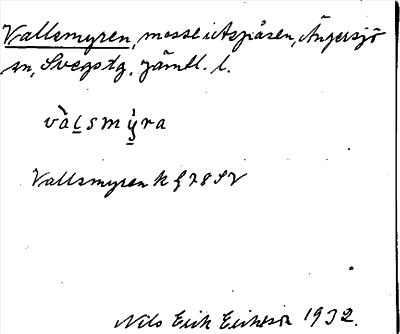 Vallsmyren, mosse i Aspåsen, Ängersjö
sn, Svegs tg, Jämtl. l.
vàlsmỳra
Vallsmyren k g 78 SV
Nils Erik Erikson 1932.